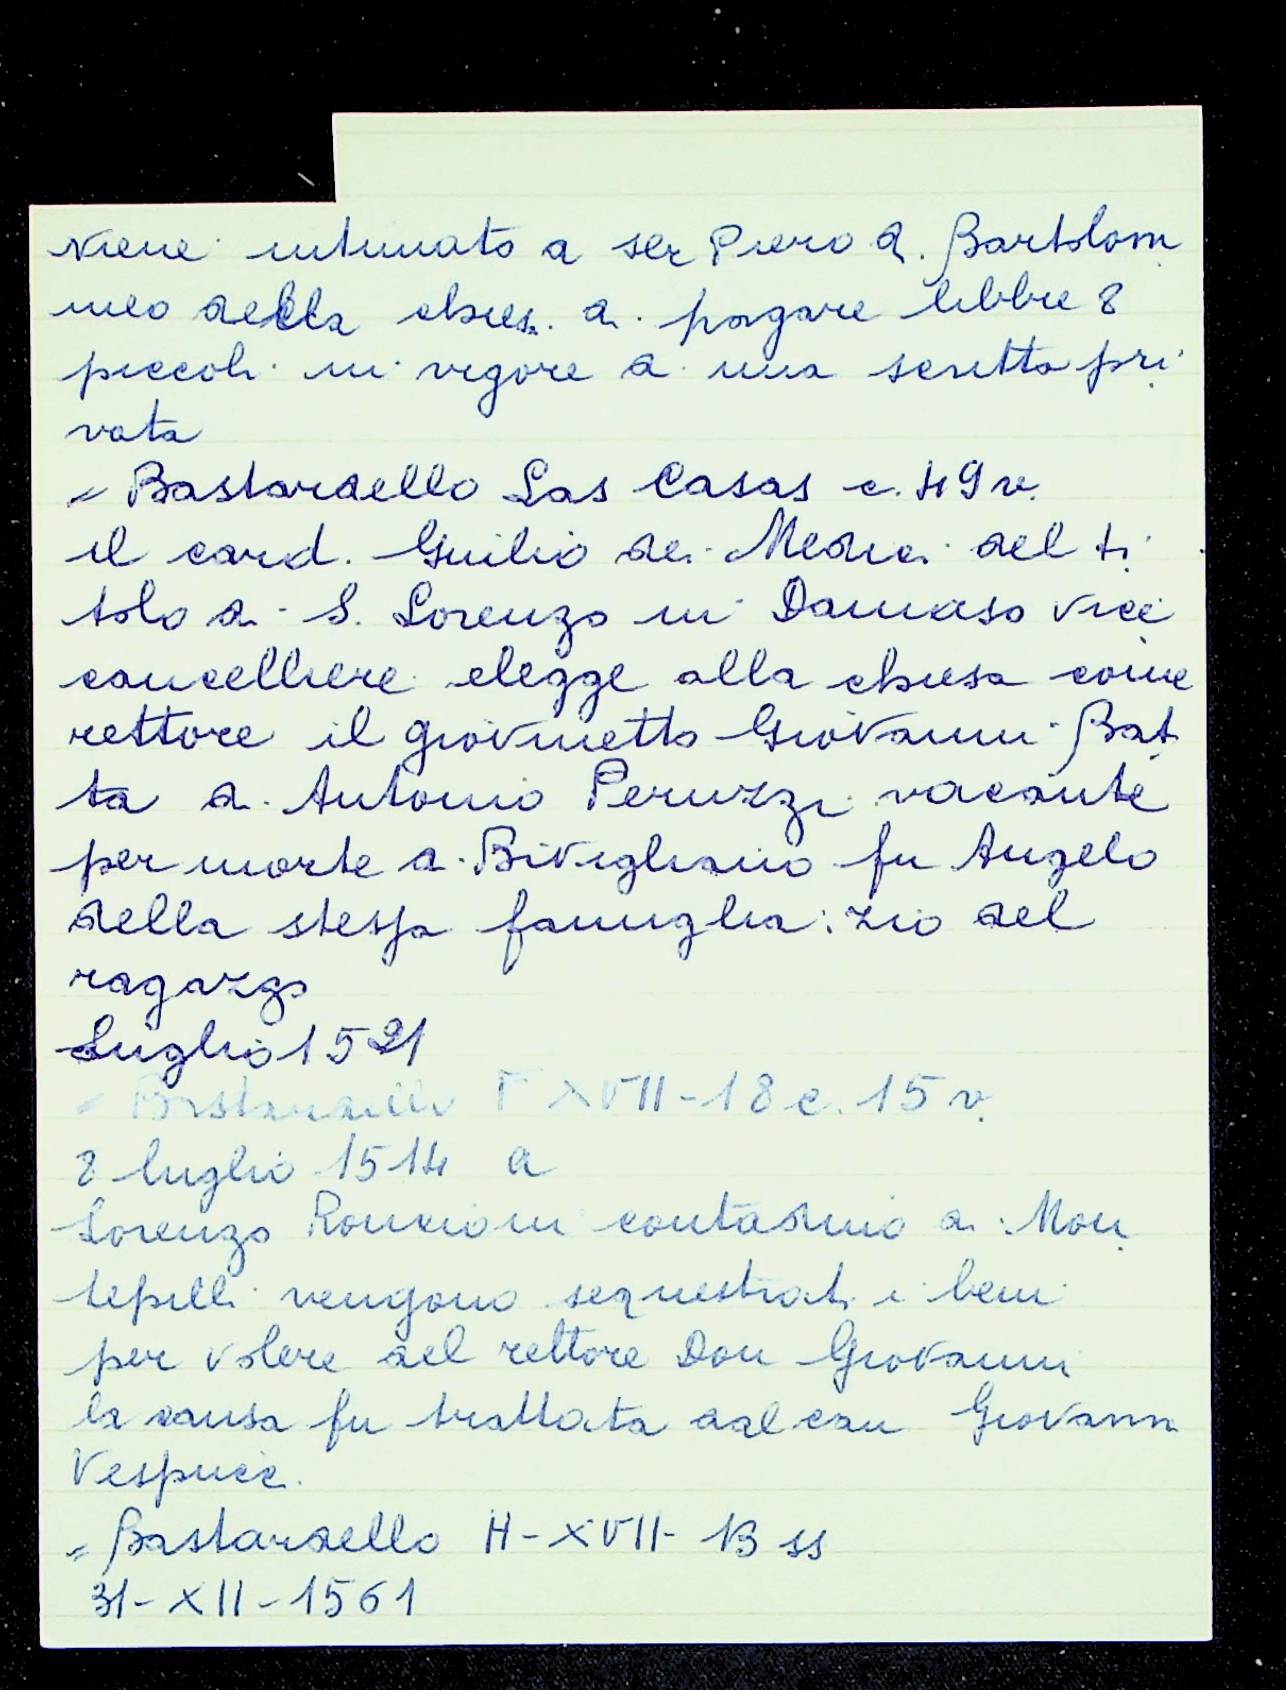 viene intimato a ser Piero di Bartolom
meo della chies. di pagare libbre 8
piccoli in vigore di una scritta pri
vata
= Bastardello Las Casas c. 49 v.
il card. Guilio dei Medici del ti
tolo di S. Lorenzo in Damaso vice
cancelliere elegge alla chiesa come
rettore il giovinetto Giovanni Bat
ta di Antonio Peruzzi vacante
per morte di Bivigliano fu Angelo
della stessa famiglia: zio del
ragazzo
Luglio 1521
= Bastardello F XVII - 18 c. 15 v.
8 luglio 1514 a
Lorenzo Roncioni contadino di Mon
tepilli vengono sequestrati i beni
per volere del rettore Don Giovanni
la causa fu trattata dal can Giovanni
Vespucci.
= Bastardello H - XVII - 13 ss
31 - XII - 1561